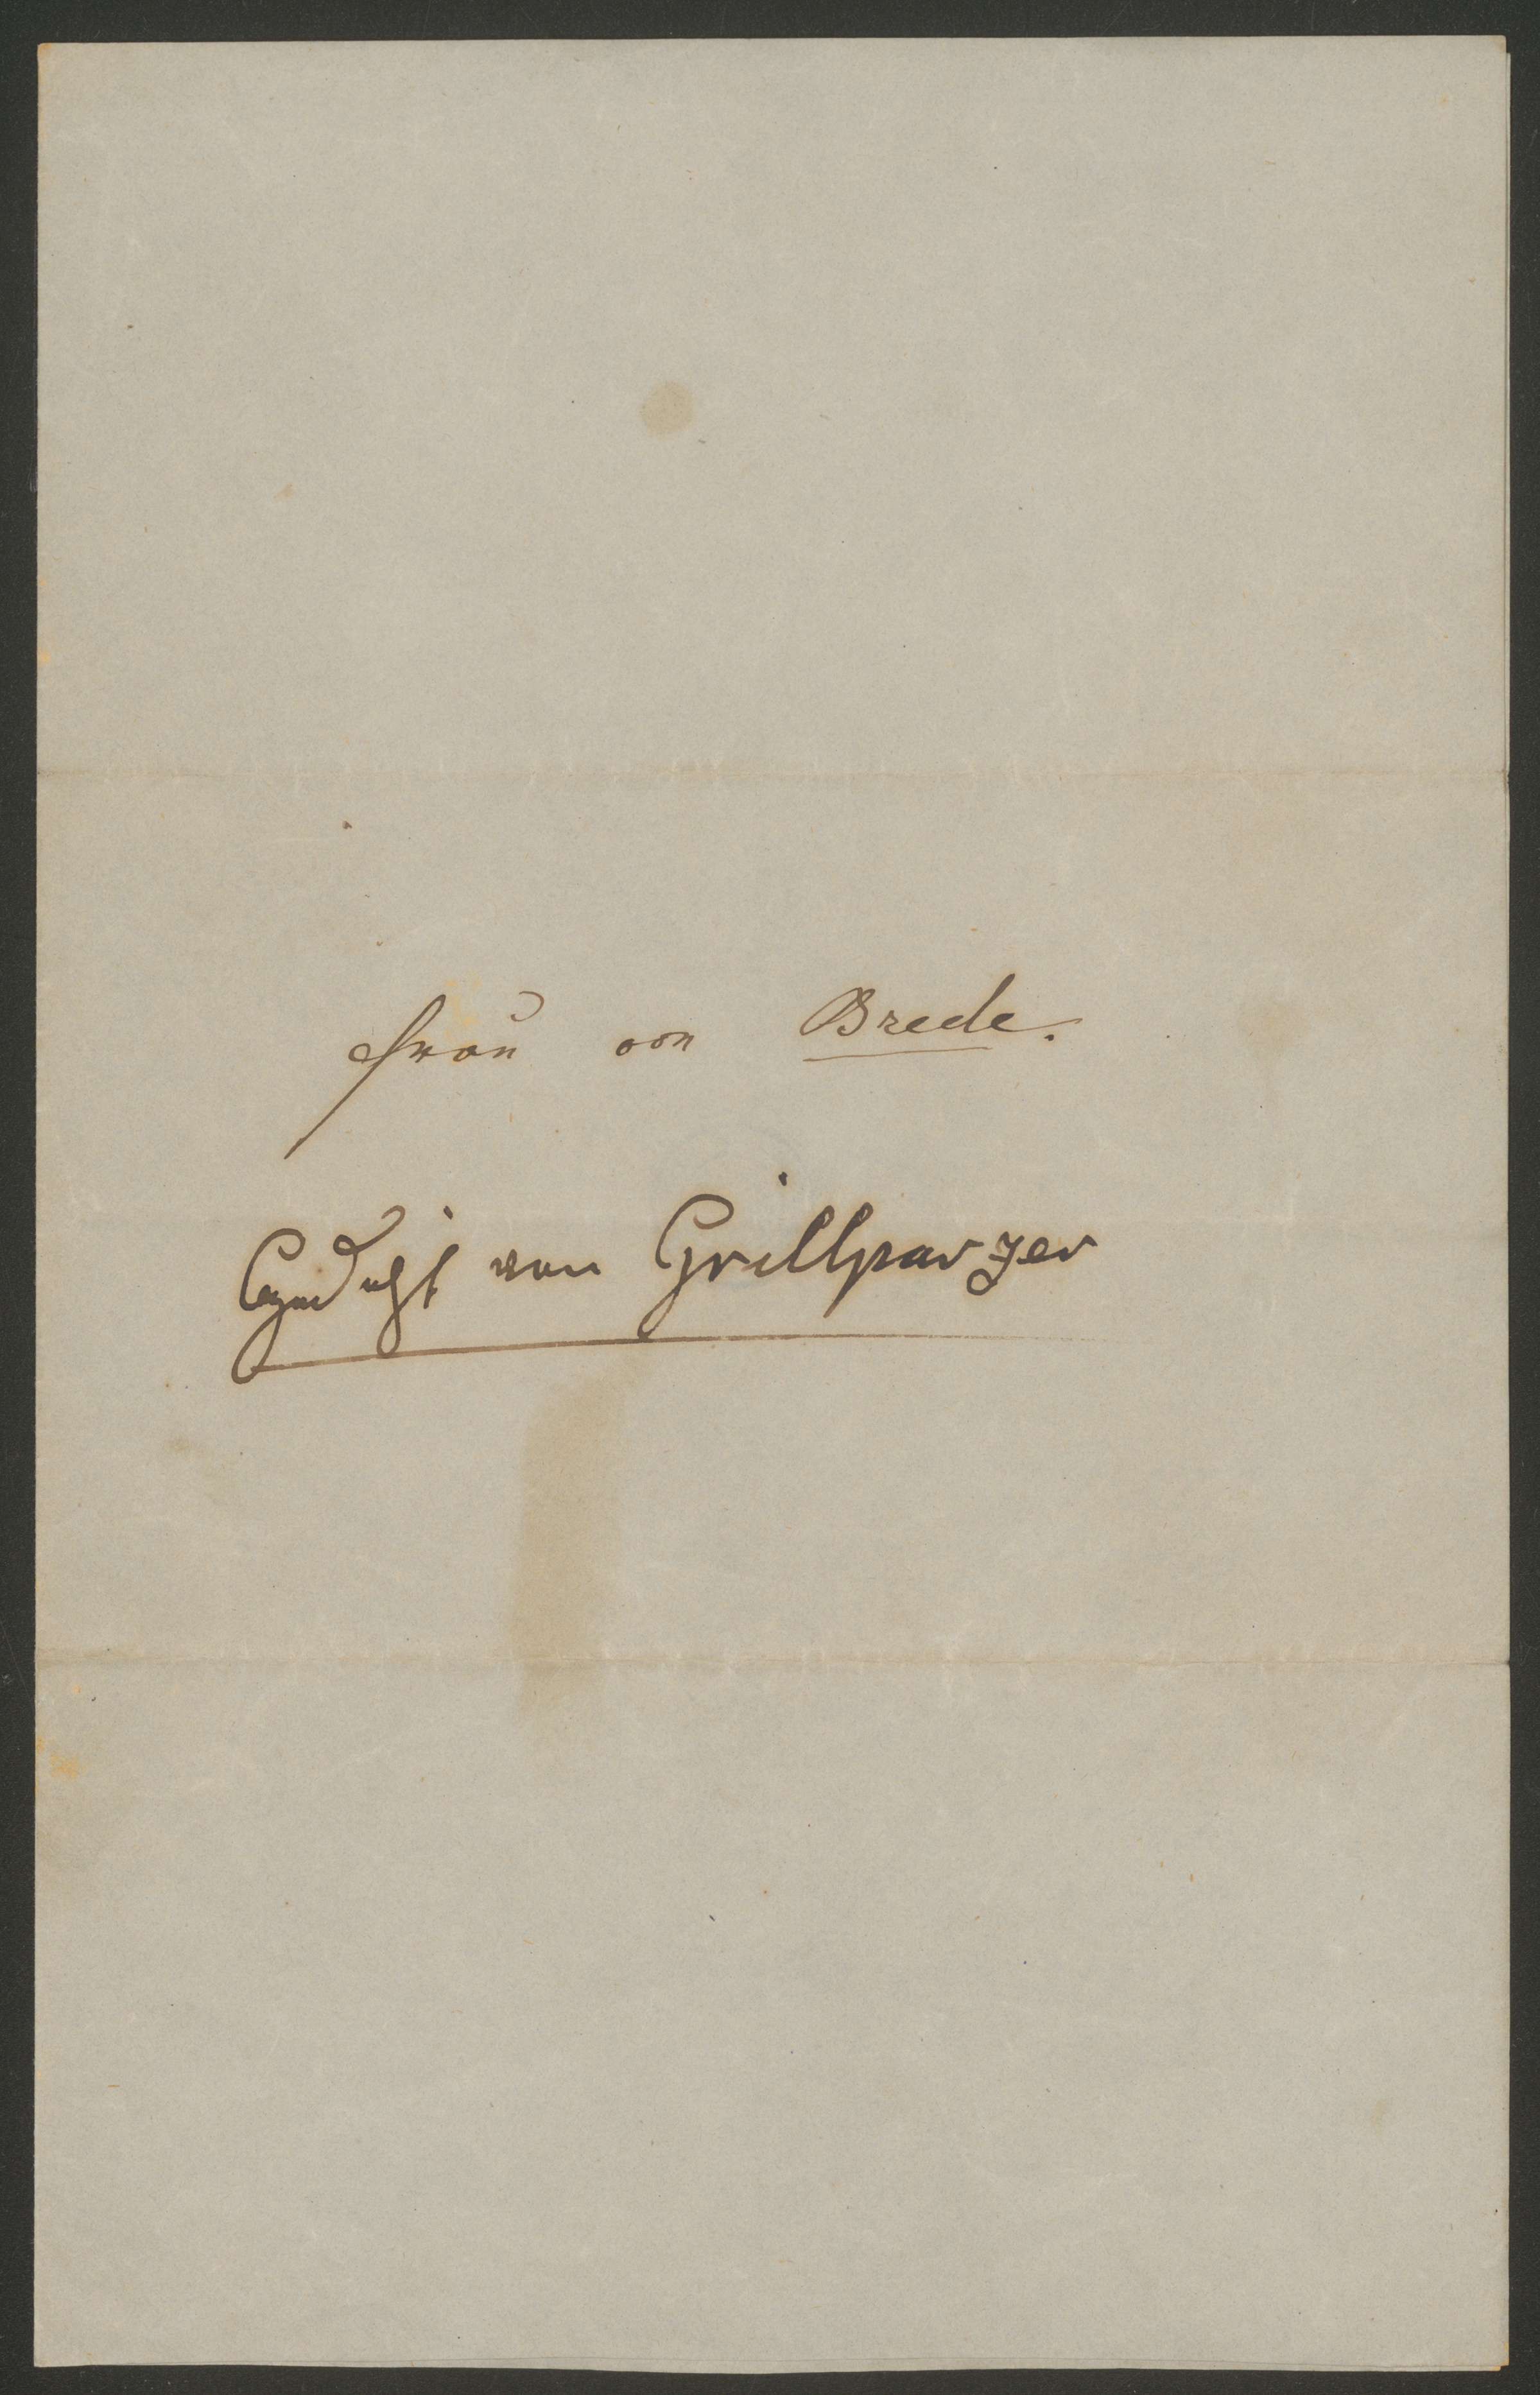 Frau von Brede.
Gedicht von Grillparzer